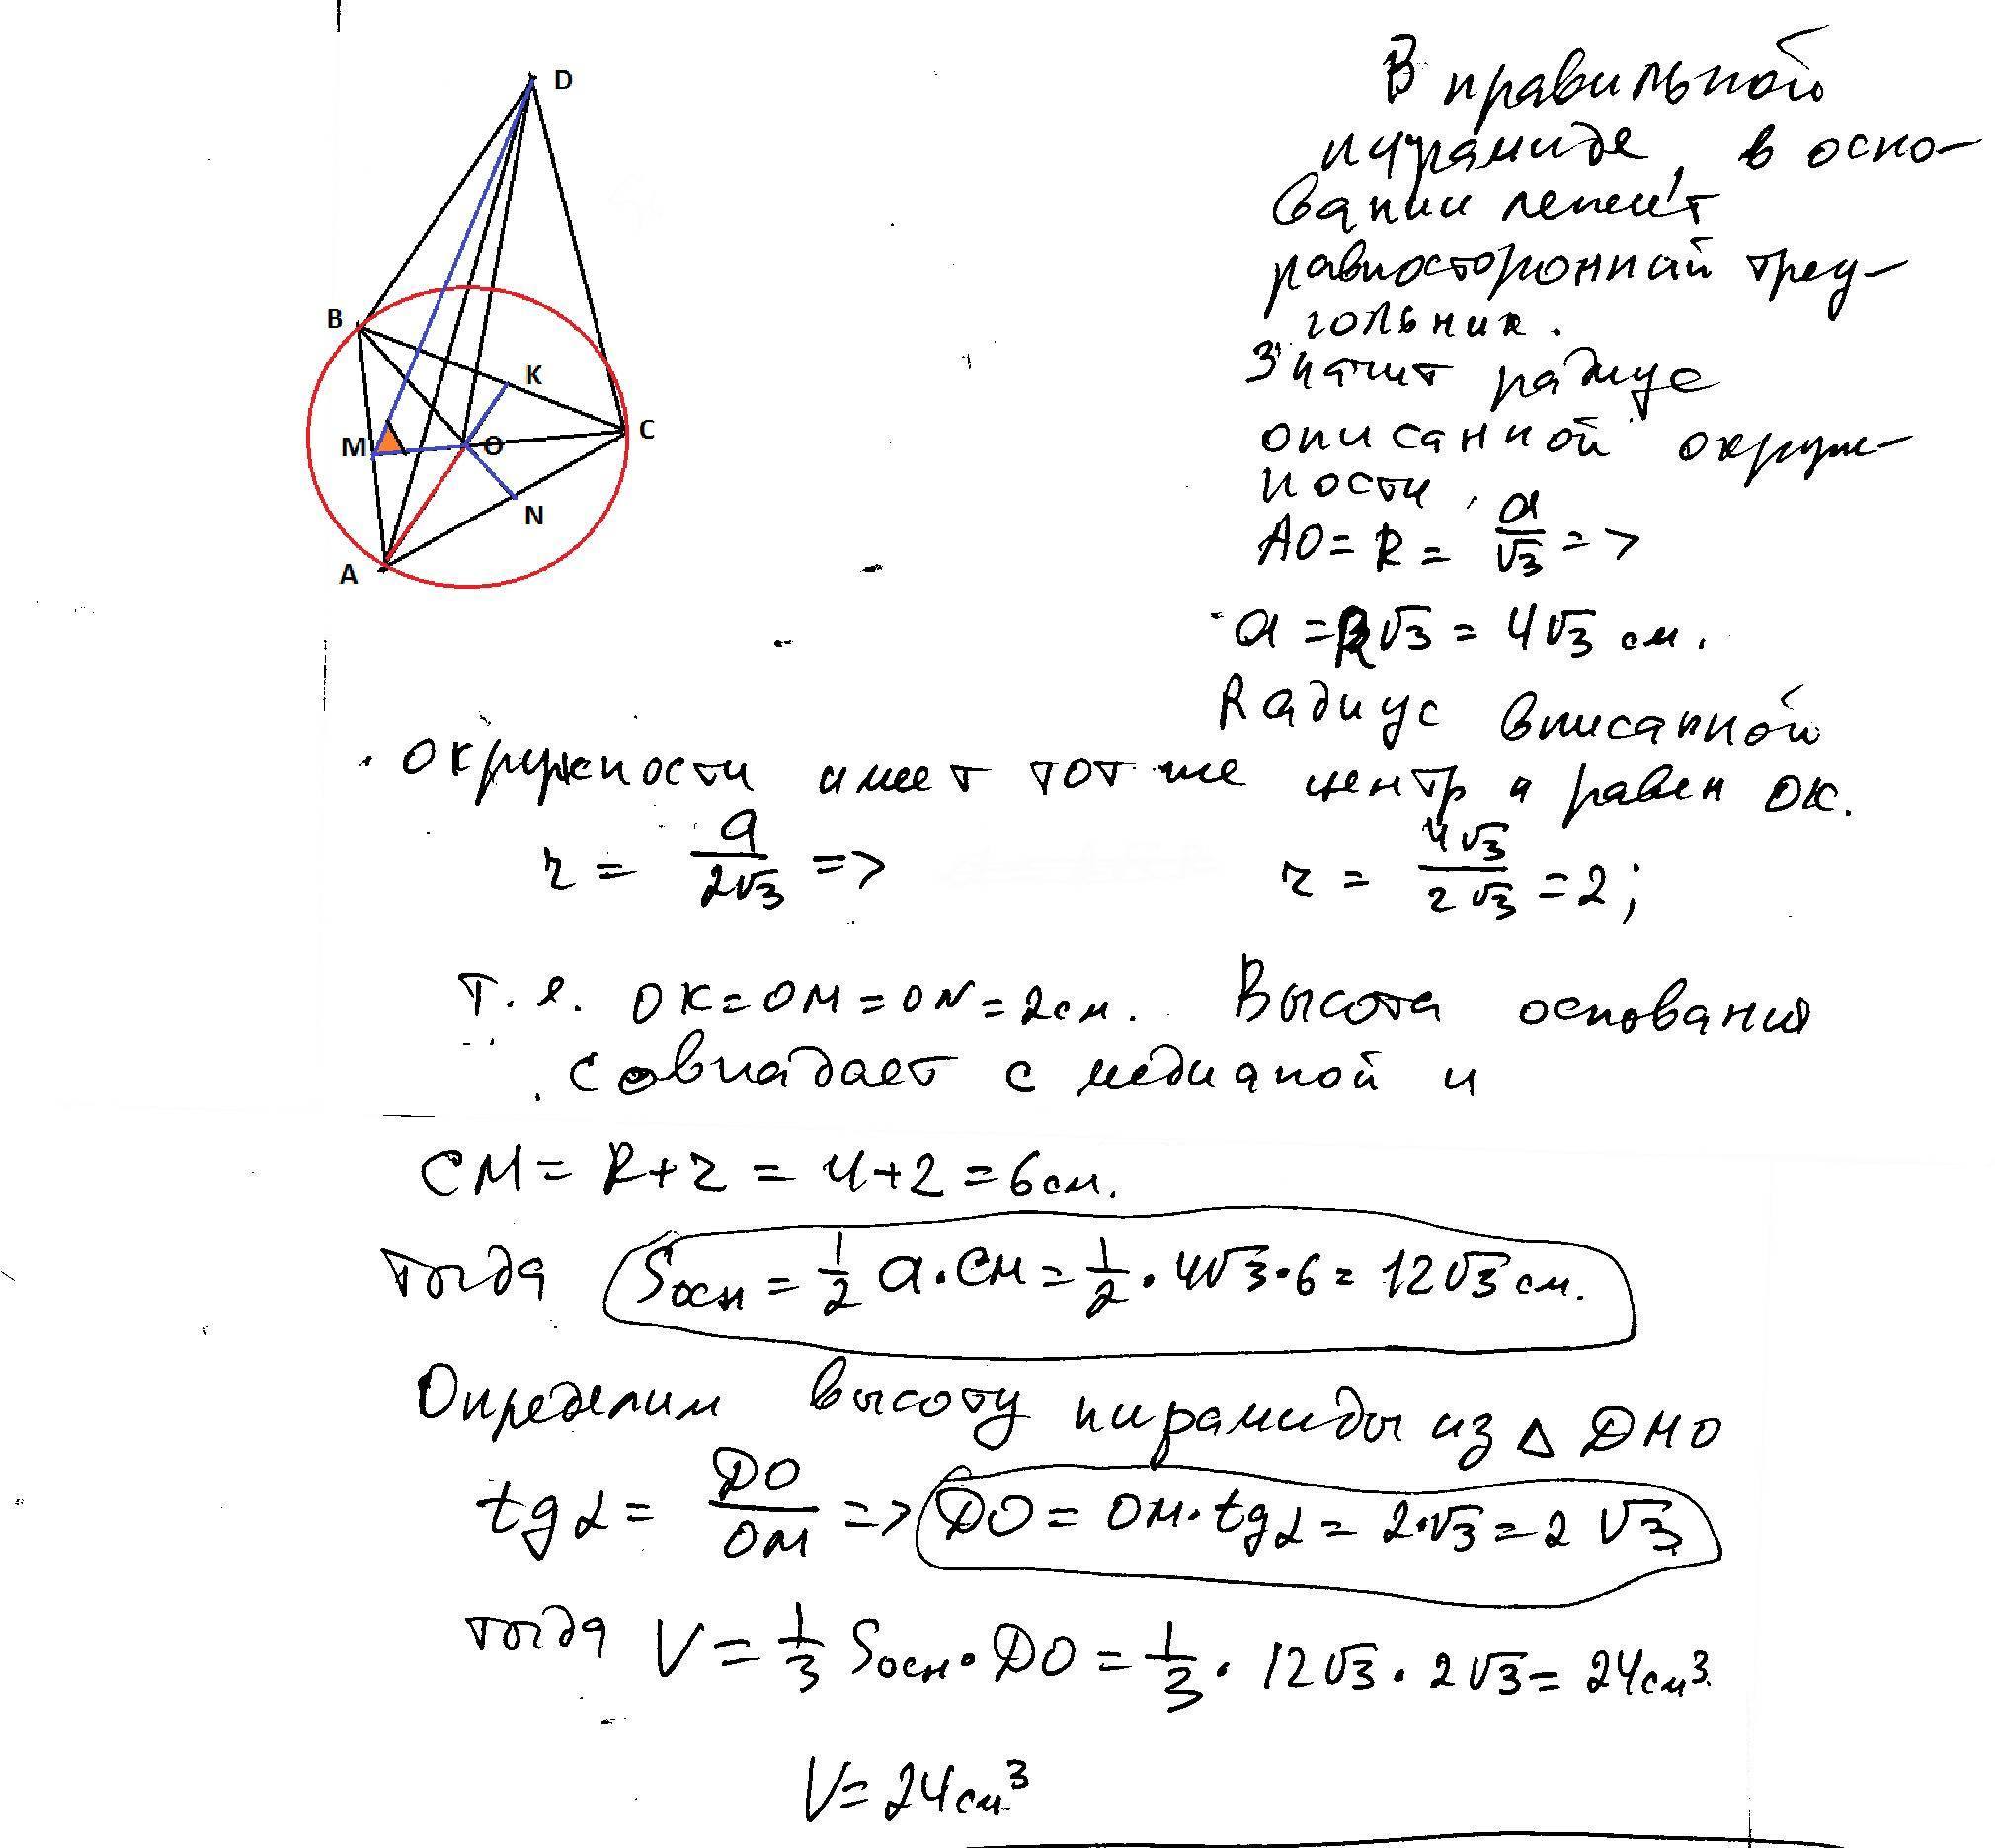 D
B
K
C
M
O
N
A
В правильной
пирамиде, в осно-
вании лежит
равносторонний треу-
гольник.
Значит радиус
описанной окруж-
ности,
AO = R = a/√3 =>
a = R√3 = 4√3 см.
Радиус вписанной
окружности имеет тот же центр и равен OK.
r = a/2√3 => r = 4√3/2√3 = 2;
т.е. OK = OM = ON = 2см. Высота основания
совпадает с медианой и
CM = R + r = 4 + 2 = 6 см.
тогда Sосн = 1/2 a · CM = 1/2 · 4√3 · 6 = 12√3 см.
Определим высоту пирамиды из △ DMO
tg α = DO/OM => DO = OM · tg α = 2·√3 = 2√3
тогда V = 1/3 Sосн · DO = 1/3 · 12√3 · 2√3 = 24 см³
V = 24 см³